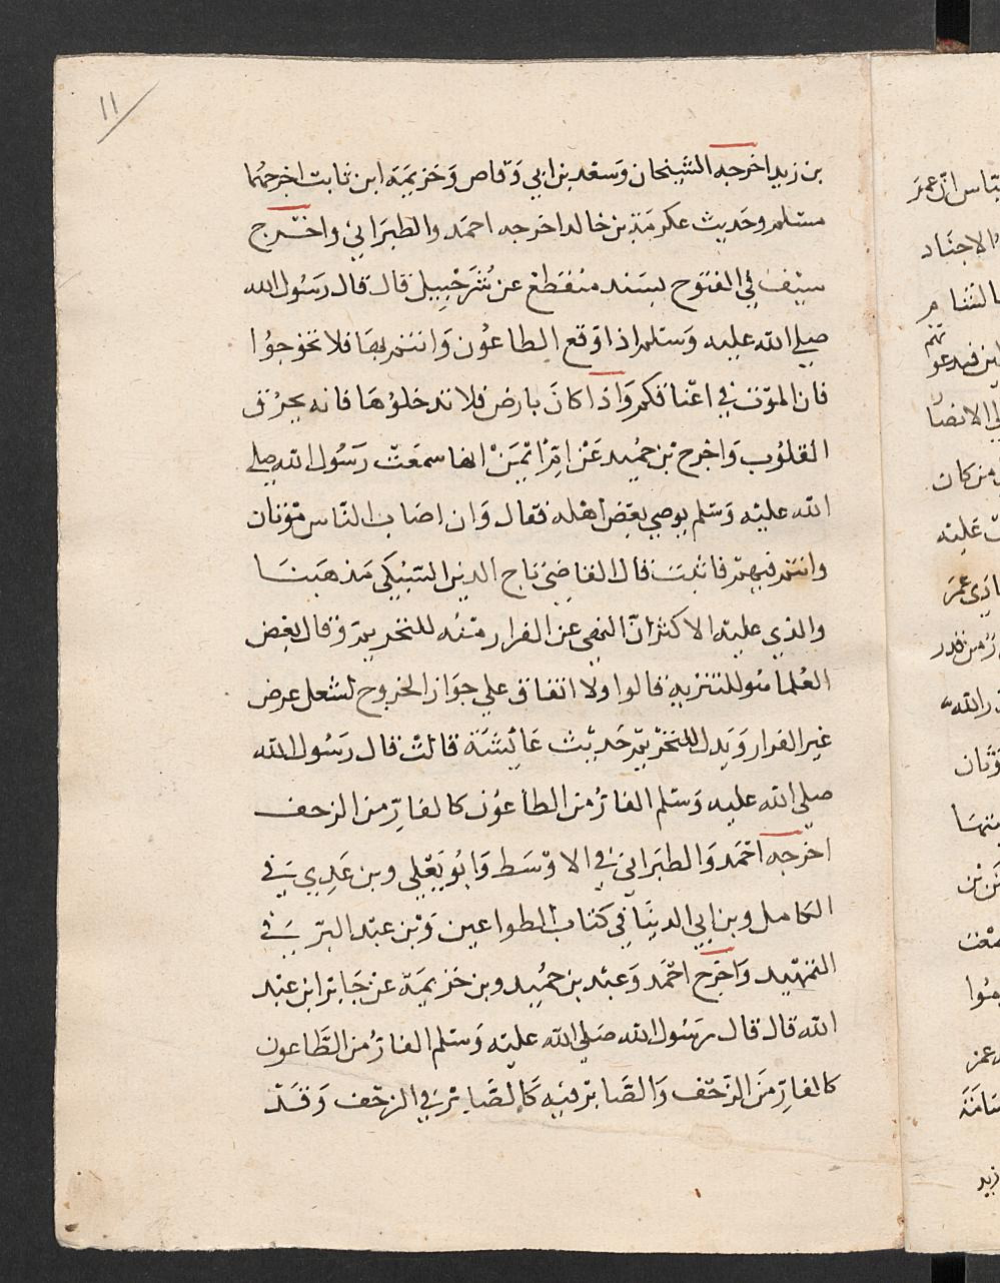 ١١
بن زيد اخرجه الشيخان وَسَعْد بن ابي وَقاص وَخزيمَة ابن ثابت اخرجهُما
مسْلم وحَديث عكرمَة بن خالد اخرجه احمَد والطبرَاني واخرج
سيْف في الفتوح بسَند منقطع عن شُرَحْبِيل قال قال رسَوُل الله
صلى الله عليه وَسَلم اذا وَقع الطاعُون وَانتم بهَا فلا تخرجوُا
فان الموْت في اعْناقكم وَاذا كانَ بارض فلا تدخلوُهَا فانه يحرق
القلوُب وَاخرج بْن حُميد عَنْ امّ ايْمَنْ انها سمعَتْ رَسُول الله صلى
الله عليْه وَسَلم يوصي بعَض اهْله فقال وَان اصَاب النّاس مَوْتان
وانتم فيهمْ فاثبت قال القاضي تاج الدين السّبْكي مَذهَبنَا
والذي عليْه الاكثر انّ النهي عن الفرار منْه للتحريم وَقال بعْض
العُلما هُو للتنزيه قالوا ولا اتفاق علي جوَاز الخروج لشغل عرض
غير الفرار وَيَدل للتحْريم حَديْث عَايْشَة قالتْ قال رسَوُل الله
صلى الله عليه وَسَلم الفارُ من الطاعُون كالفارّ من الزحف
اخرجه احْمَد وَالطبرَاني في الاوْسَط وَابُو يَعْلي وبن عَدِي في
الكامل وبن ابي الدنيَا في كتاب الطواعين وَبْن عبْد البّر في
التمهْيد وَاخرج احْمَد وَعبْد بن حُميد وبن خزيمَة عن جَابر ابن عبْد
الله قال قال رسَوُل الله صَلى الله عليْه وَسَلم الفارُ من الطَّاعون
كالفارِّ منَ الزّحْف وَالصَّابرُ فيْه كَالصَّابرِ في الزحْف وَقَدْ